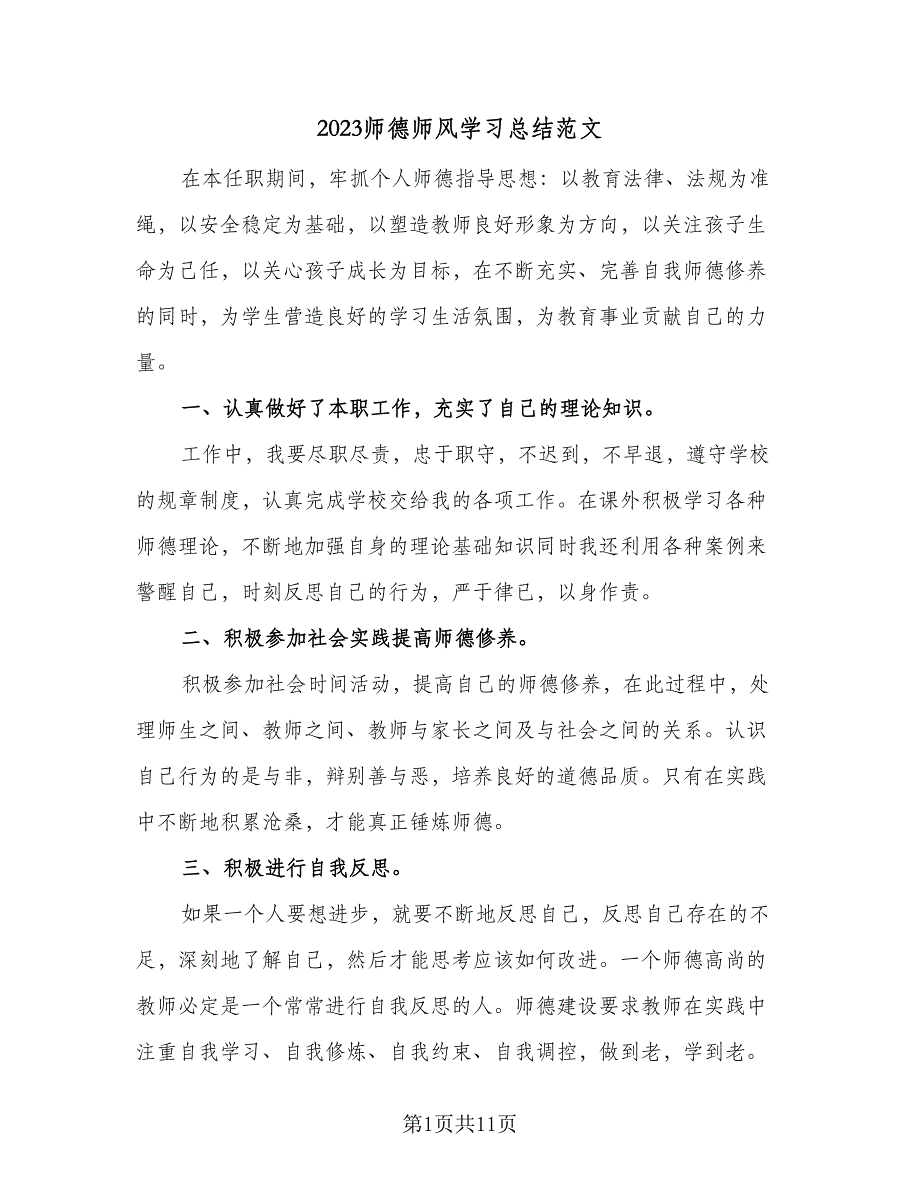 2023师德师风学习总结范文
在本任职期间，牢抓个人师德指导思想：以教育法律、法规为准
绳，以安全稳定为基础，以塑造教师良好形象为方向，以关注孩子生
命为己任，以关心孩子成长为目标，在不断充实、完善自我师德修养
的同时，为学生营造良好的学习生活氛围，为教育事业贡献自己的力
量。
一、认真做好了本职工作，充实了自己的理论知识。
工作中，我要尽职尽责，忠于职守，不迟到，不早退，遵守学校
的规章制度，认真完成学校交给我的各项工作。在课外积极学习各种
师德理论，不断地加强自身的理论基础知识同时我还利用各种案例来
警醒自己，时刻反思自己的行为，严于律已，以身作责。
二、积极参加社会实践提高师德修养。
积极参加社会时间活动，提高自己的师德修养，在此过程中，处
理师生之间、教师之间、教师与家长之间及与社会之间的关系。认识
自己行为的是与非，辩别善与恶，培养良好的道德品质。只有在实践
中不断地积累沧桑，才能真正锤炼师德。
三、积极进行自我反思。
如果一个人要想进步，就要不断地反思自己，反思自己存在的不
足，深刻地了解自己，然后才能思考应该如何改进。一个师德高尚的
教师必定是一个常常进行自我反思的人。师德建设要求教师在实践中
注重自我学习、自我修炼、自我约束、自我调控，做到老，学到老。
第1页共11页